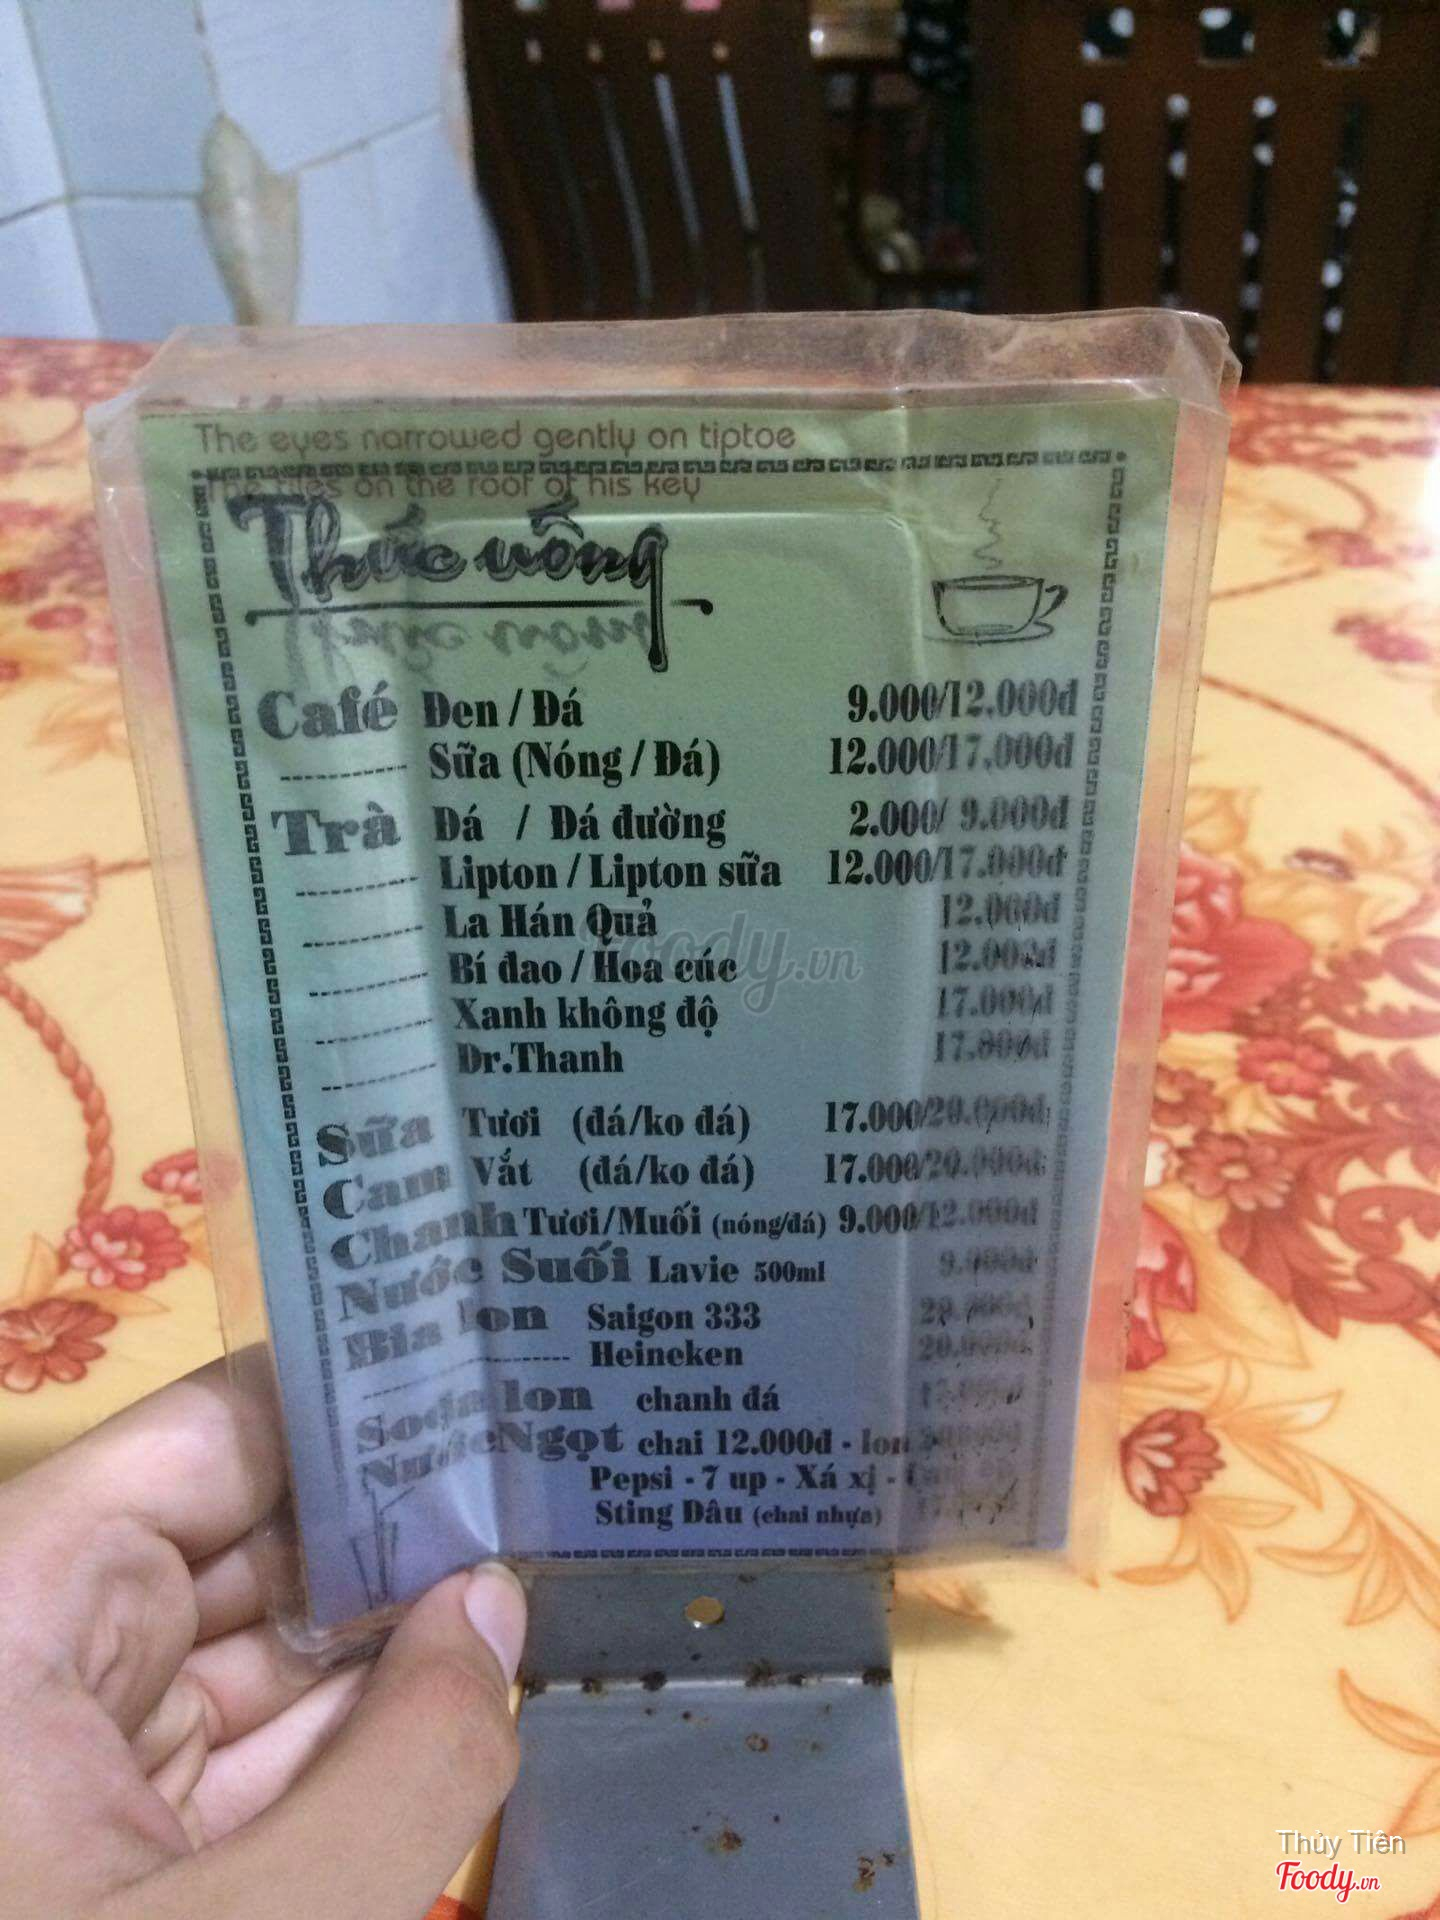 The eyes narrowed gently on tiptoe
on the roof of his key
Thức uống
Café Đen / Đá 9.000/12.000đ
Sữa (Nóng / Đá) 12.000/17.000đ
Trà Đá / Đá đường 2.000/ 9.000đ
Lipton / Lipton sữa 12.000/17.000đ
La Hán Quả 12.000đ
Bí đao / Hoa cúc 12.000đ
Xanh không độ 17.000đ
Dr.Thanh 17.000đ
Sữa Tươi (đá/ko đá) 17.000/20.000đ
Cam Vắt (đá/ko đá) 17.000/20.000đ
Chanh Tươi/Muối (nóng/đá) 9.000/12.000đ
Nước Suối Lavie 500ml 9.000đ
Bia lon Saigon 333 20.000đ
Heineken 20.000đ
Soda lon chanh đá
Nước Ngọt chai 12.000đ - lon
Pepsi - 7 up - Xá xị -
Sting Dâu (chai nhựa)
foody.vn
Thủy Tiên
Foody.vn